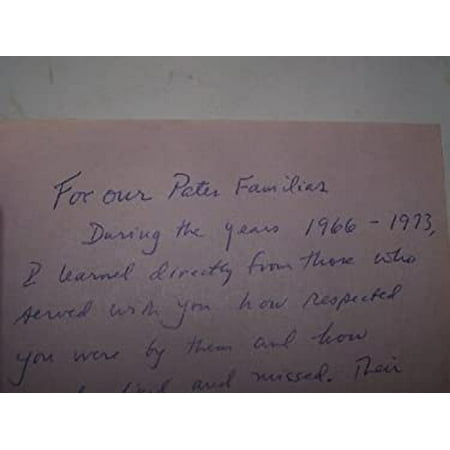 For our Pater Familias
During the years 1966 - 1973,
I learned directly from those who
served with you how respected
you were by them and how
and missed. Their